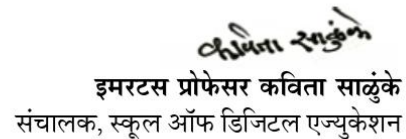 कविता साळुंके
इमरटस प्रोफेसर कविता साळुंके
संचालक, स्कूल ऑफ डिजिटल एज्युकेशन